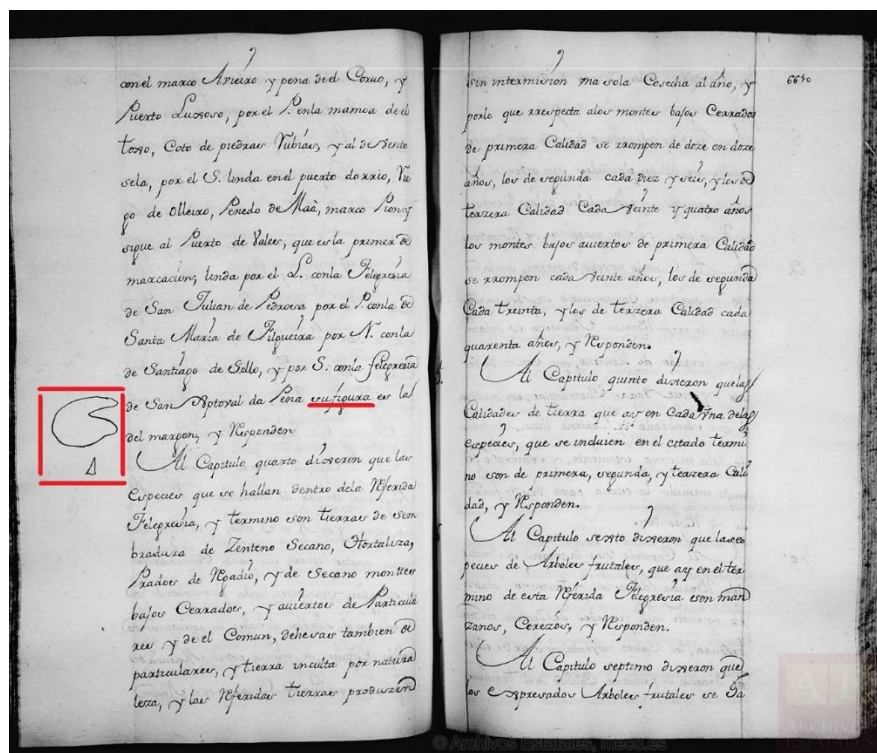 con el marco Arieiro y pena de el Corvo, y
Puerto Luxoso, por el P. en la mamoa de el
toxo, Coto de piedras Rubias, y al de Vento
sela, por el S. linda en el puerto do rrio, Ve
go de Olleiro, Penedo de Maà, marco Pion y
sigue al Puerto de Vales, que es la primer de
marcacion, linda por el L. con la Felegresia
de San Julian de Pedroea por el P. con la de
Santa Maria de Filgueira por N. con la
de Santiago de Gello, y por S. con la felegresia
de San da Pena su figura es la
del margen, y Responden
Al Capitulo quarto dixeron que las
especies que se hallan dentro dela Referida
Felegresia, y termino son tierras de sem
bradura de Zenteno Secano, Ortaliza,
Prados de Regadio, y de Secano montes
bajos Cerrados, y aviertos de Particula
res y de el Comun, dehesas tambien de
particulares, y tierra inculta por natura
leza, y las Referidas tierras produzen
6610
sin intermision una sola Cosecha al año, y
porlo que rrespecta alos montes bajos Cerrados
de primera Calidad se rrompen de doze en doze
años, los de segunda cada diez y seis, y los de
terzera Calidad Cada Veinte y quatro años
los montes bajos aviertos de primera Calidad
se rrompen cada Veinte años, los de segunda
Cada treinta, y los de terzera Calidad cada
quarenta años, y Responden.
Al Capitulo quinto dixeron que las
Calidades de tierra que ay en Cada Vna delas
especies, que se incluien en el citado termi
no son de primera, segunda, y terzera Cali
dad, y Responden.
Al Capitulo sexto dixeron que lases
pecies de Arboles frutales, que ay en el ter
mino de esta Referida Felegresia son man
zanos, Cerezos, y Responden.
Al Capitulo septimo dixeron que
los expresados Arboles frutales se Da
© Archivos Estatales, mecd.es